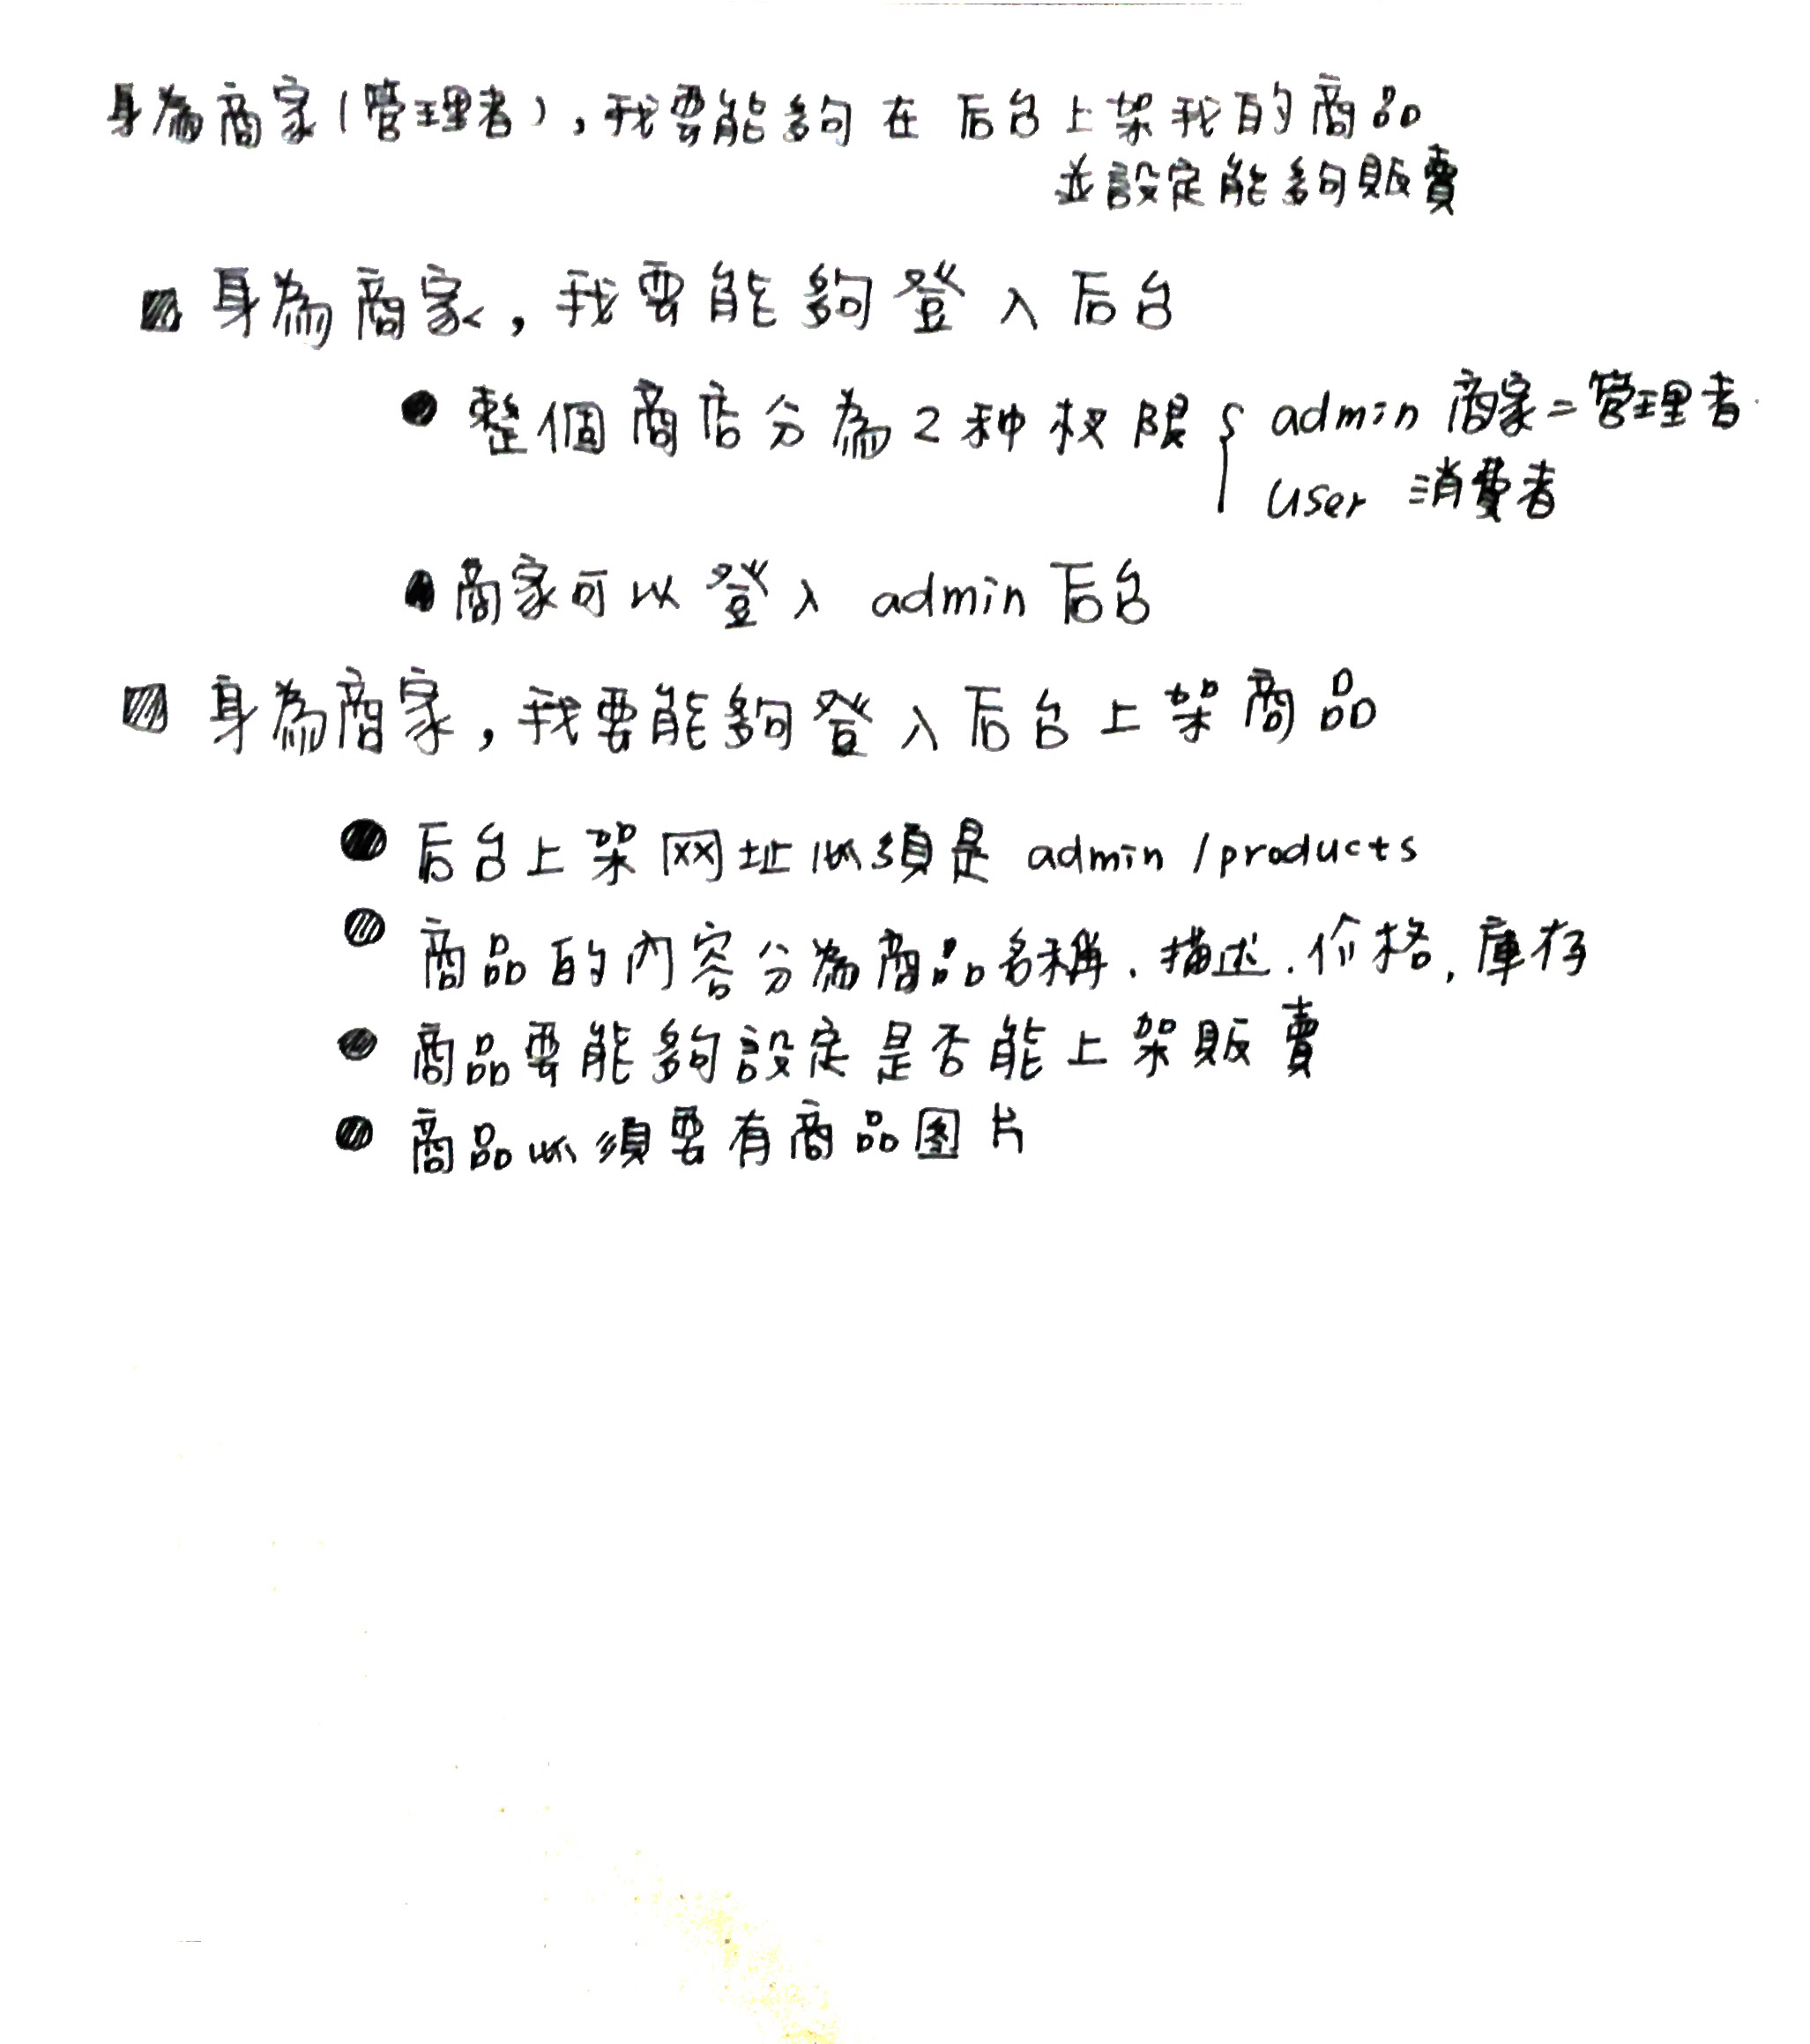 身為商家(管理者),我要能夠在后台上架我的商品
並設定能夠販賣
身為商家,我要能夠登入后台
整個商店分為2种权限{ admin 商家=管理者
user 消費者
商家可以登入 admin 后台
身為商家,我要能夠登入后台上架商品
后台上架网址必須是 admin /products
商品的內容分為商品名稱、描述、价格,庫存
商品要能夠設定是否能上架販賣
商品必須要有商品图片